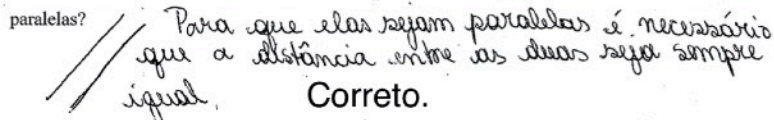 paralelas? Para que elas sejam paralelas é necessário
que a distância entre as duas seja sempre
igual. Correto.